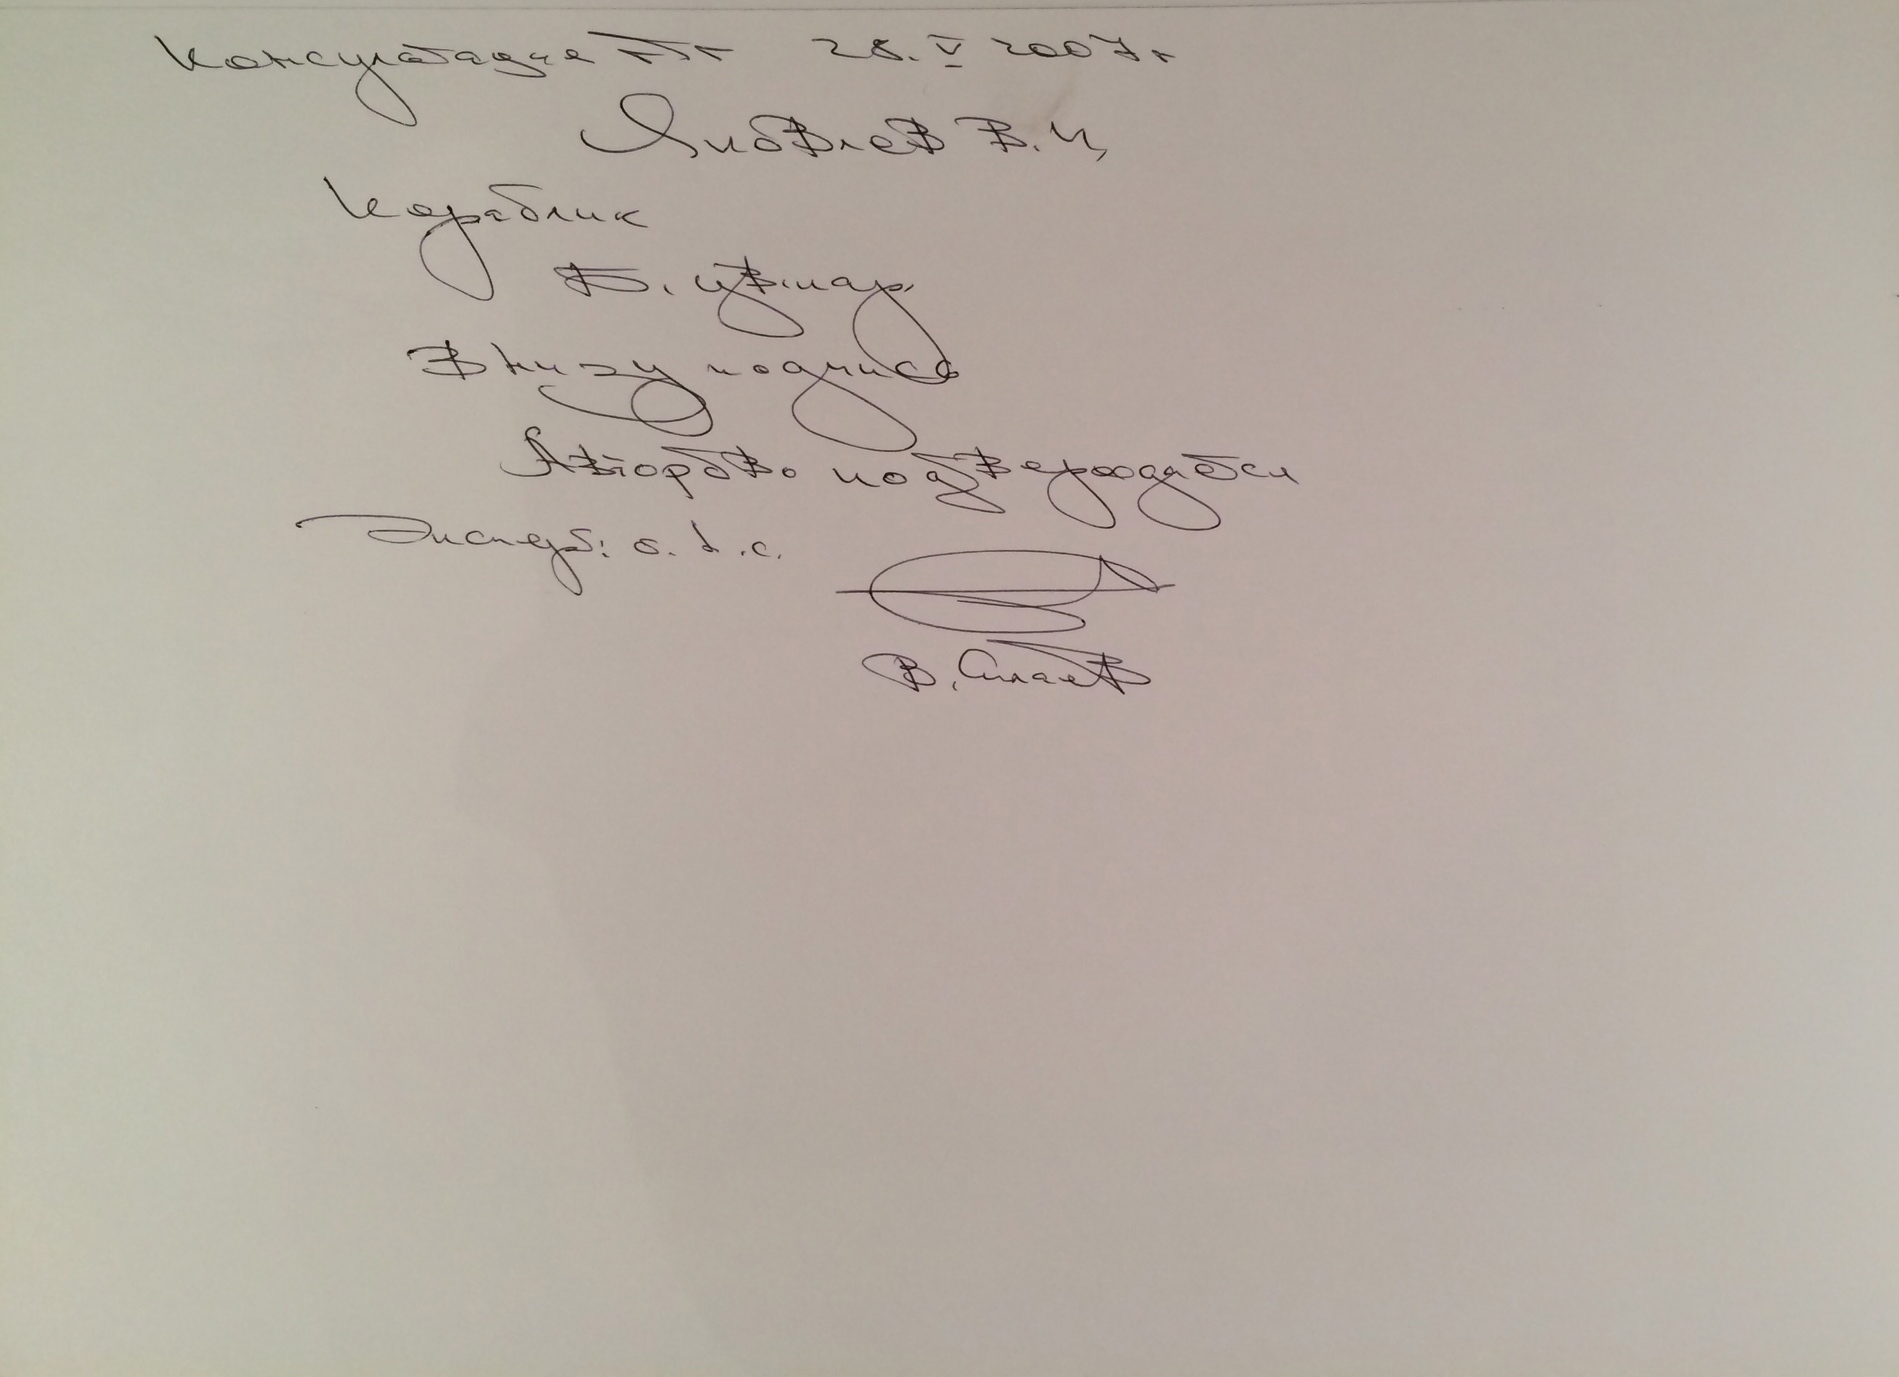 Консультация ГТГ 28.V 2007г
Яковлев В.И.
Кораблик
Б. цв. кар.
Внизу подпись
Авторство подтверждается
Эксперт:
В. Силаев